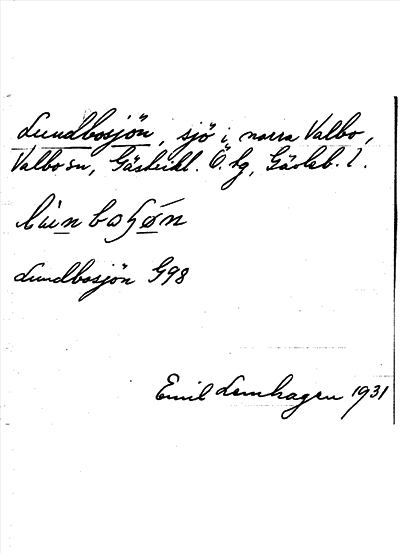 Lundbosjön, sjö i norra Valbo,
Valbo sn, Gästrikl. Ö. tg, Gävleb. l.
Lundbosjön G98
Emil Lemhagen 1931